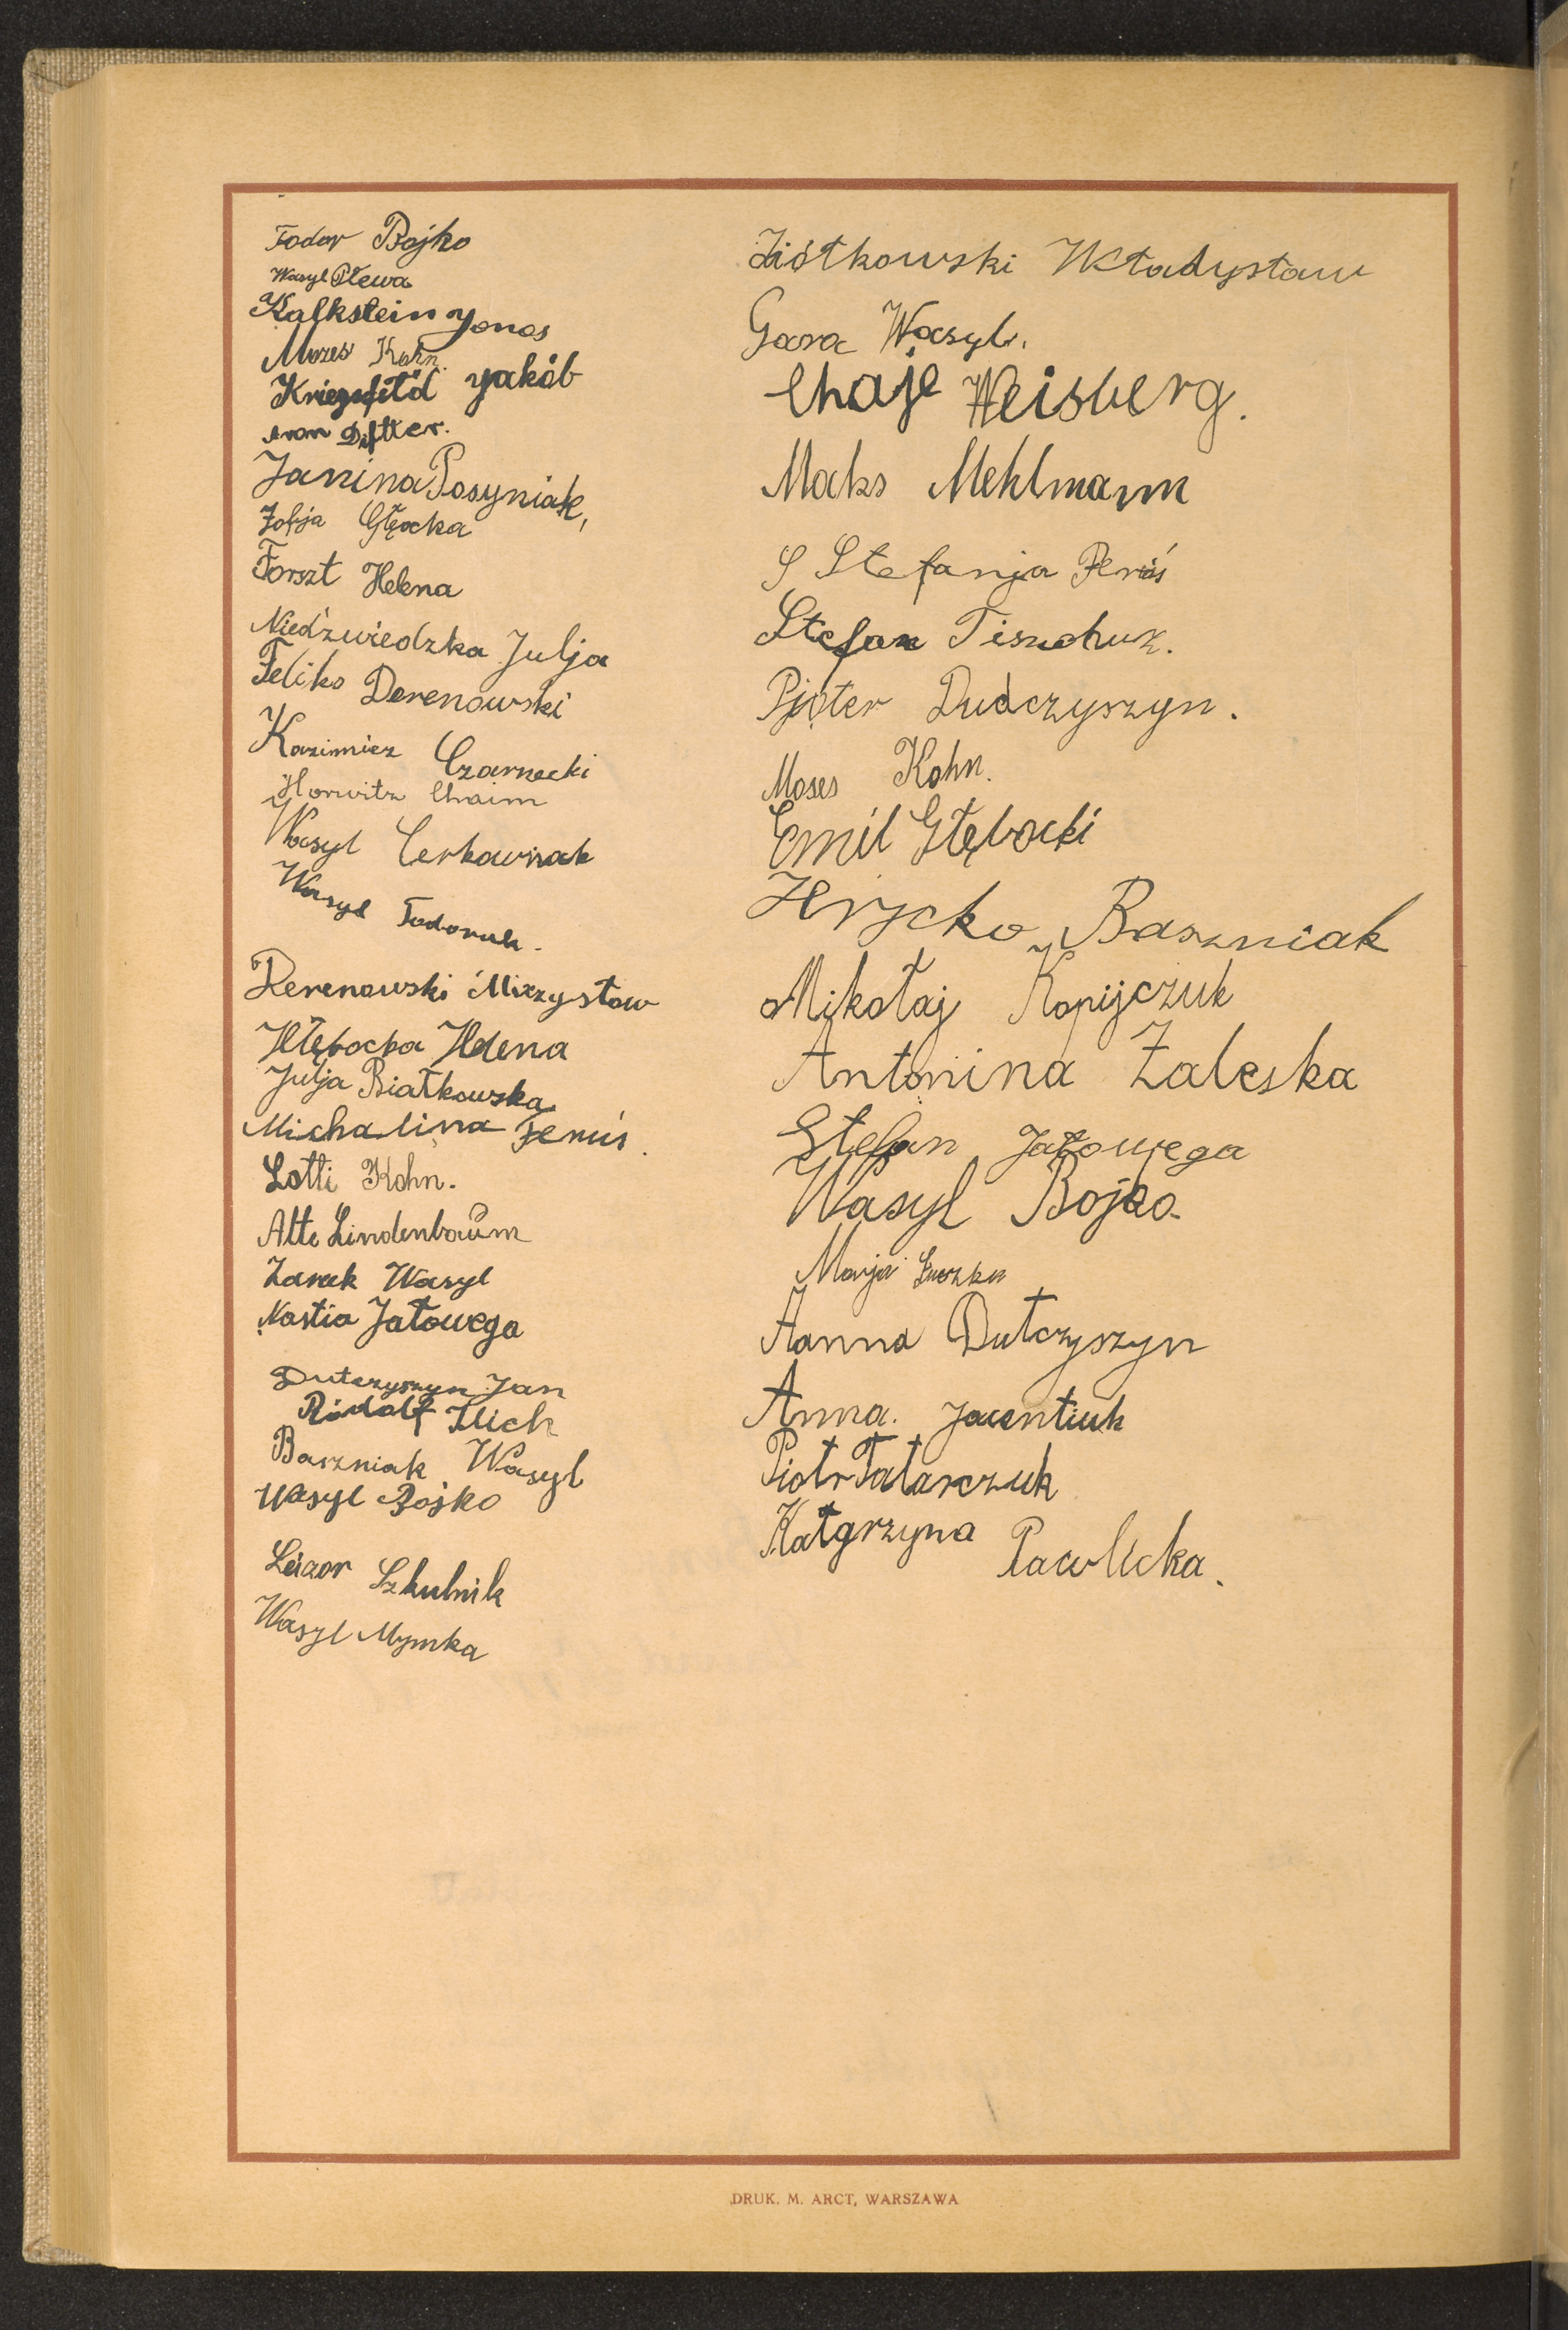 Fodor Bojko
Wasyl Plewa
Kalkstein Yonas
Mozes Kohn.
Kriegsfeld Yakób
Janina Posyniak,
Zofja Głęocka
Forszt Helena
Niedźwiedzka Julja
Feliks Derenowski
Kazimierz Czarnecki
Horwitz Chaim
Wasyl Cerkawniak
Wasyl Fodoruk.
Derenowski Mieczysław
Hłębocka Helena
Julja Białkowska
Michalina Feruś.
Lotti Kohn.
Alte Lindenbaum
Zarek Wasyl
Nastia Jałowega
Dutczyszyn Jan
Rudolf Ilich
Baszniak Wasyl
Wasyl Bojko
Leizor Szkulnik
Wasyl Mymka
Ziółkowski Władysław
Gara Wasyl.
Chaje Weisberg.
Maks Mehlmann
S Stefanja Feruś
Stefan Tiszchuk.
Pjoter Dudczyszyn.
Moses Kohn.
Emil Głębocki
Hrycko Baszniak
Mikołaj Kopijczuk
Antonina Zaleska
Stefan Jałowega
Wasyl Bojko
Marja
Hanna Dutczyszyn
Anna. Jacentiuk
Piotr Tatarczuk
Katgrzyna Pawlicka.
DRUK. M. ARCT, WARSZAWA